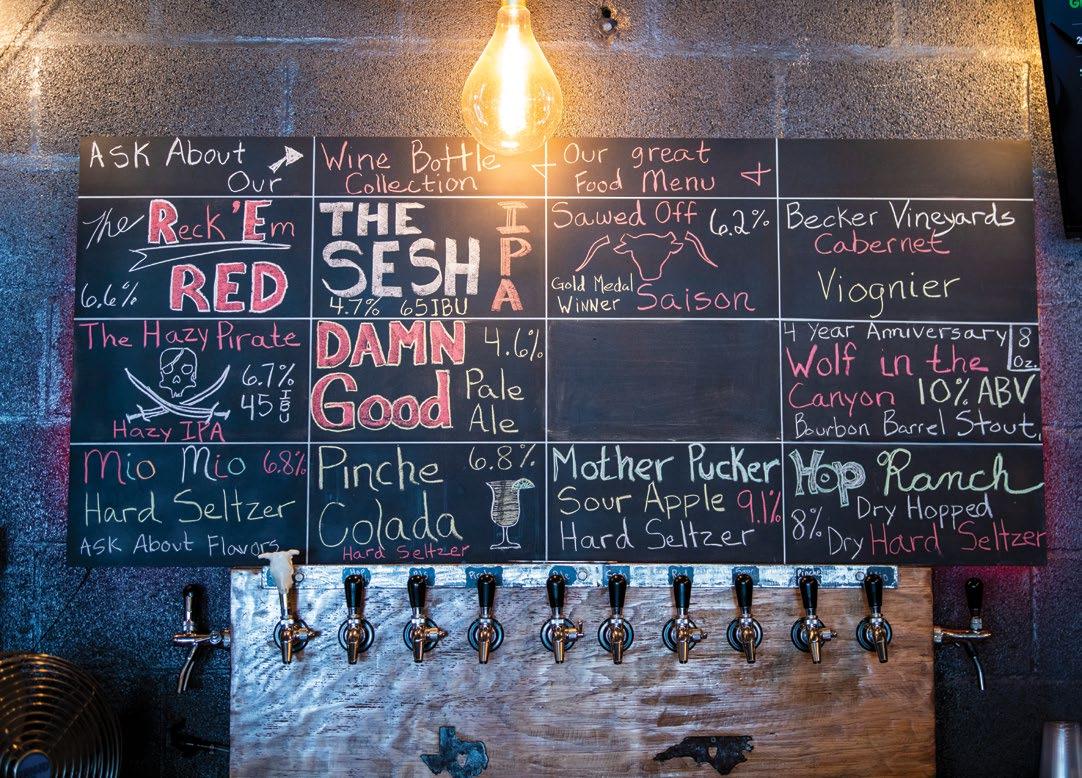 ASK About
Our
Wine Bottle
Collection
Our great
Food Menu
The Reck 'Em
RED
6.6%
THE
SESH
IPA
4.7% 65IBU
Sawed Off 6.2%
Gold Medal
Winner
Saison
Becker Vineyards
Cabernet
Viognier
The Hazy Pirate
6.7%
45 IBU
Hazy IPA
DAMN 4.6%
Good
Pale
Ale
4 Year Anniversary
8
Oz.
Wolf in the
Canyon 10% ABV
Bourbon Barrel Stout
Mio Mio 6.8%
Hard Seltzer
ASK About Flavors
Pinche 6.8%
Colada
Hard Seltzer
Mother Pucker
Sour Apple 9.1%
Hard Seltzer
Hop Ranch
Dry Hopped
8% Dry Hard Seltzer